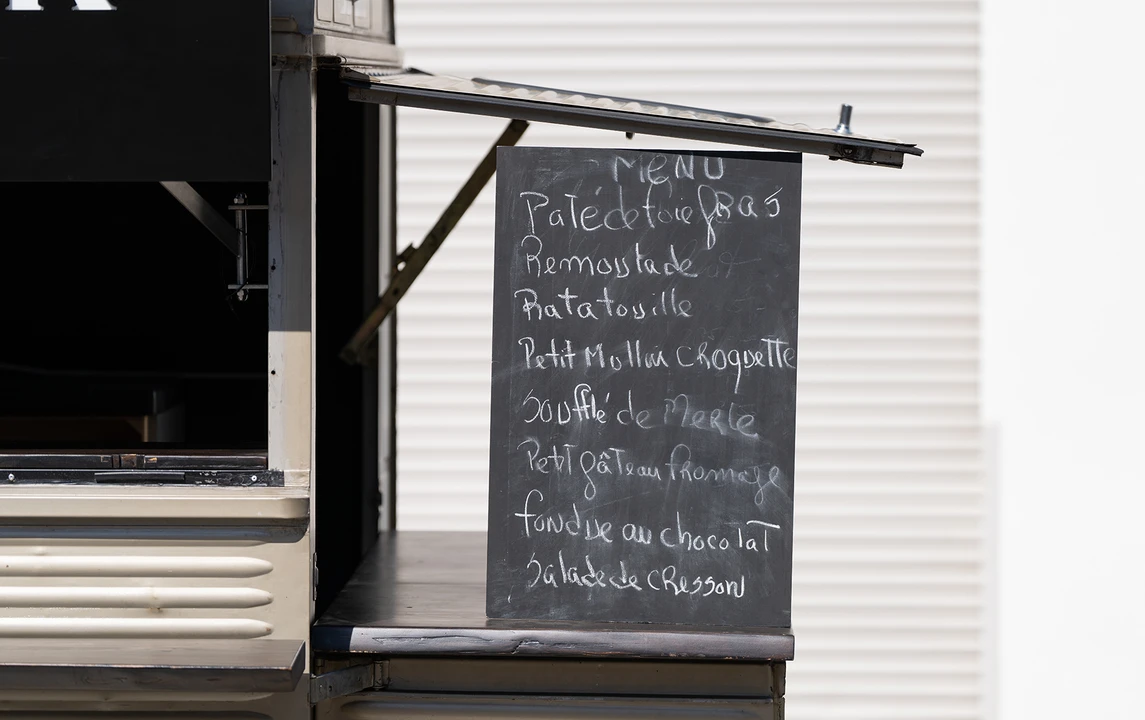 MENU
Paté de foie gras
Remoustade
Ratatouille
Petit Mollin croquette
Soufflé de Merle
Petit gâteau fromage
fondue au chocolat
Salade de cresson